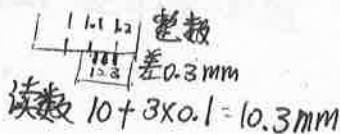 1 1.1 1.2 整数
1 2 3 差0.3mm
读数 10+3×0.1=10.3mm